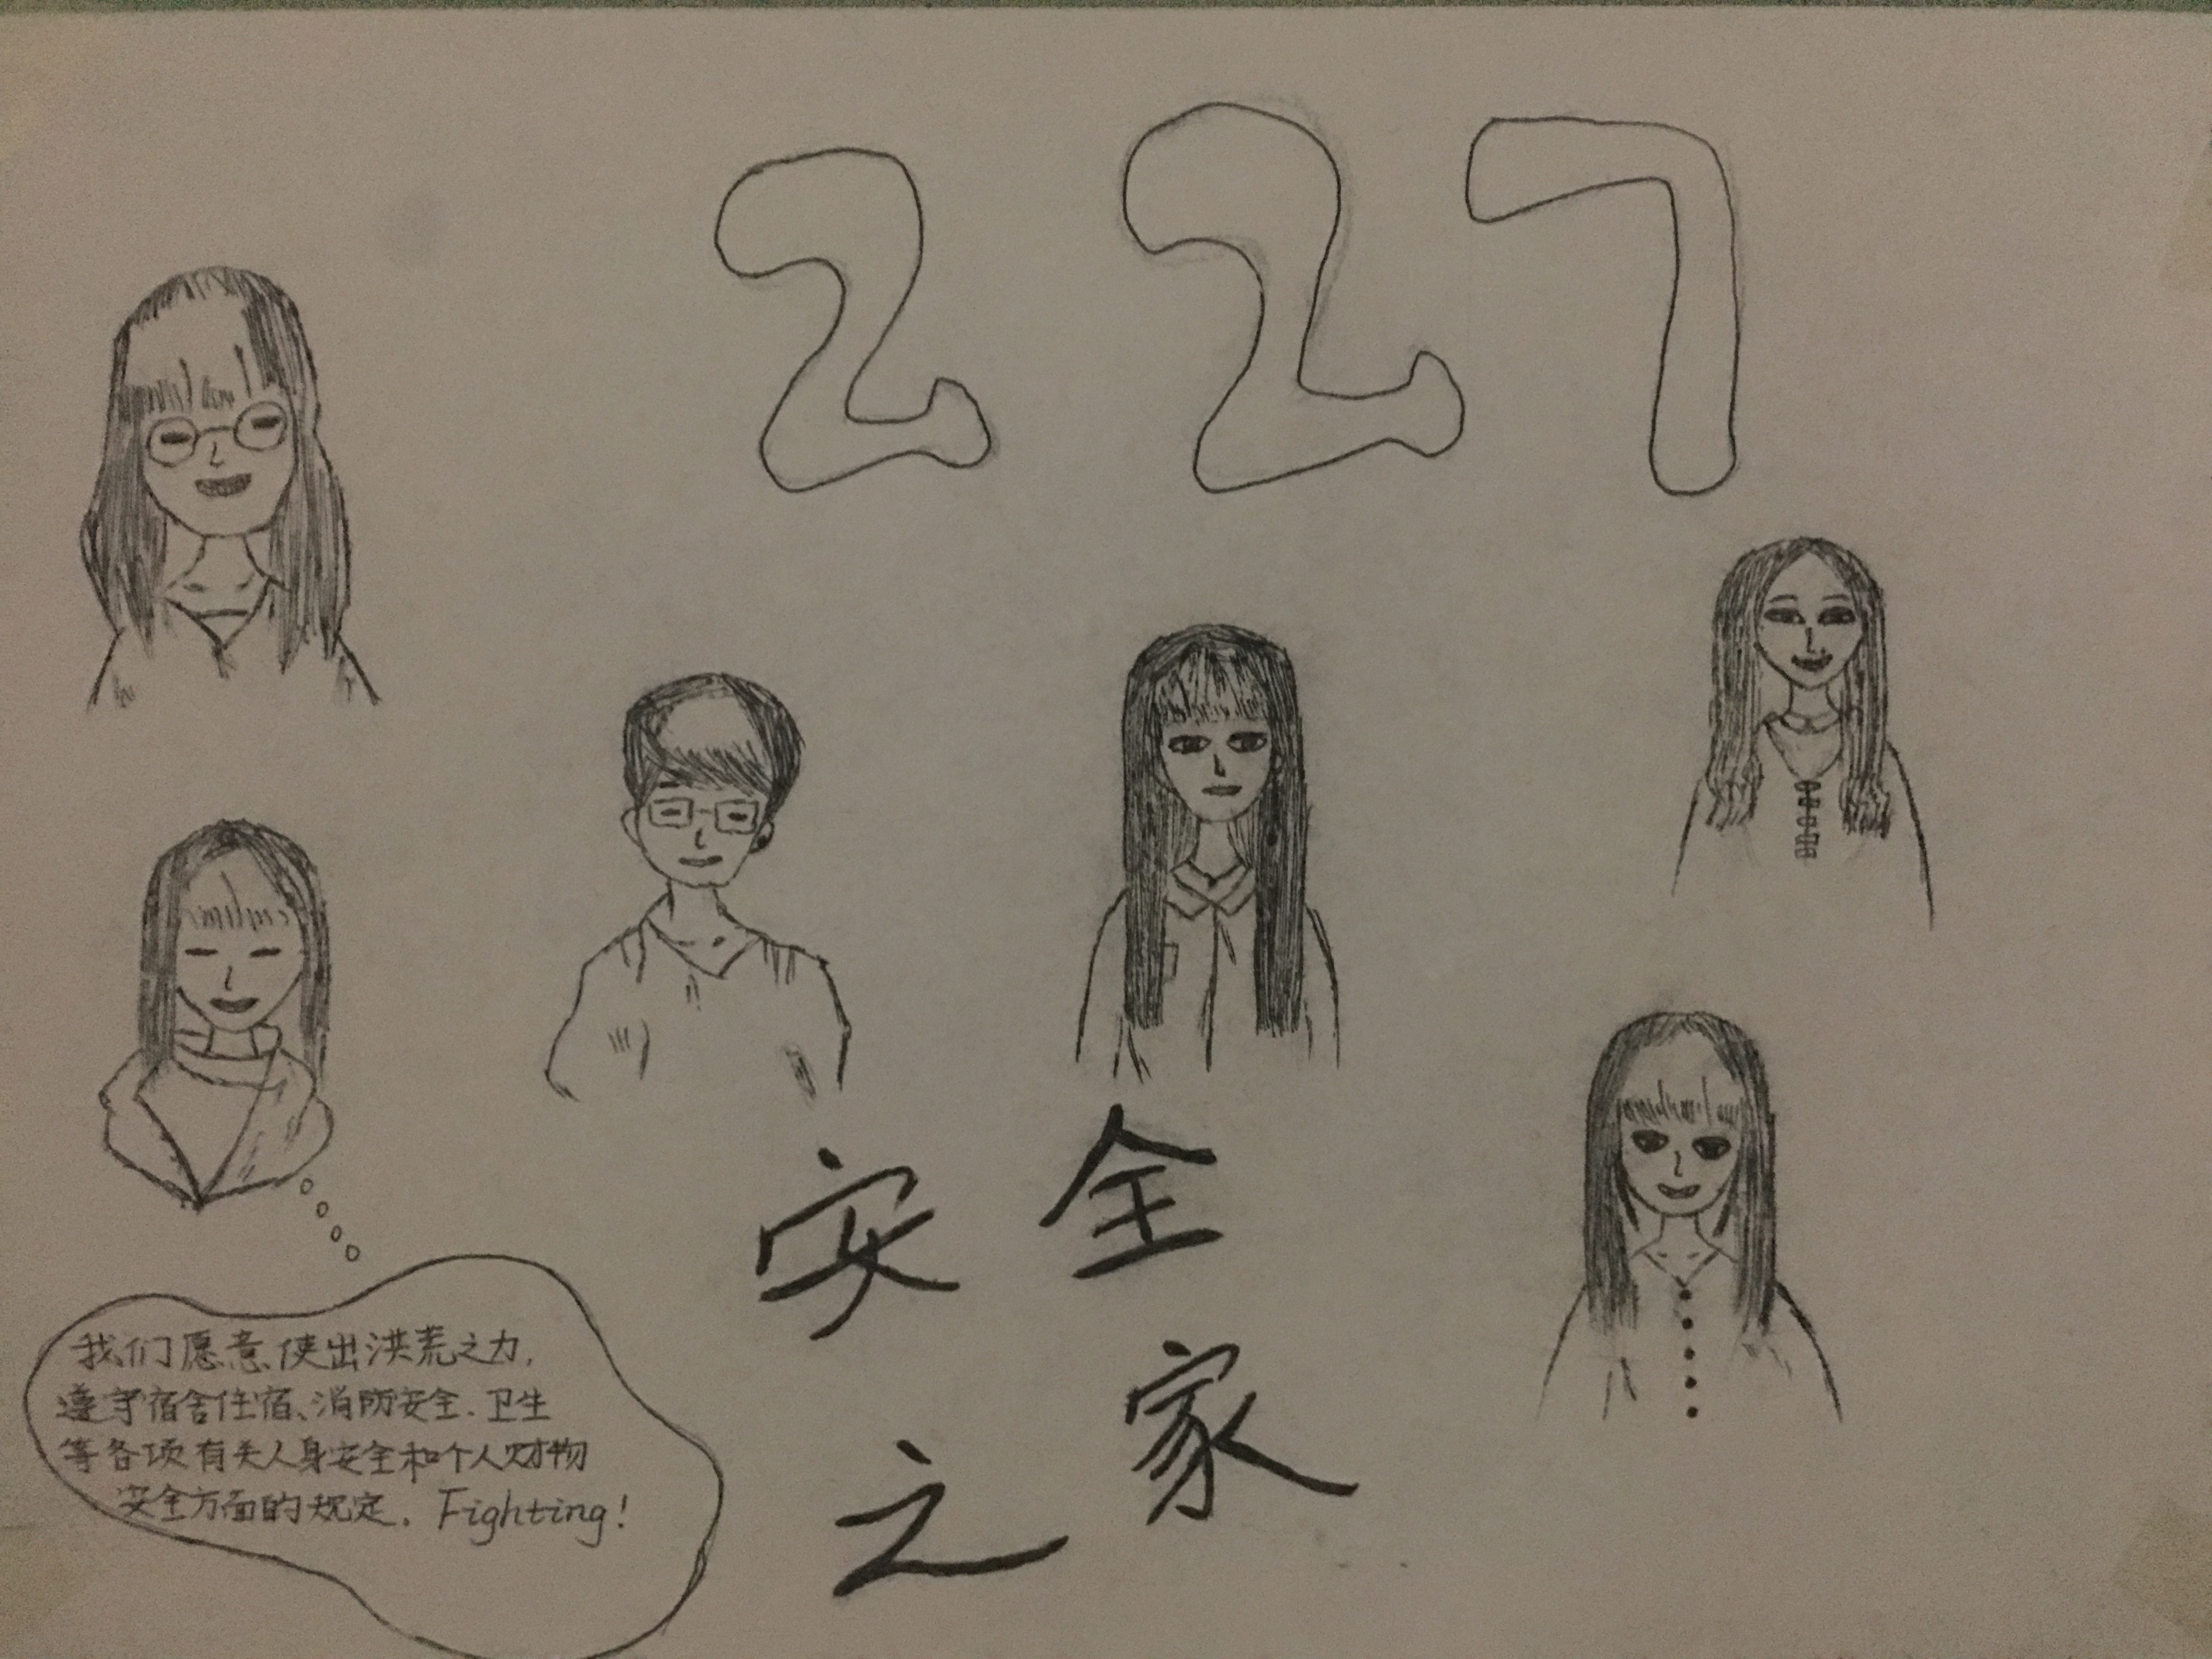 227
安全
之家
我们愿意使出洪荒之力,
遵守宿舍住宿、消防安全、卫生
等各项有关人身安全和个人财物
安全方面的规定. Fighting!